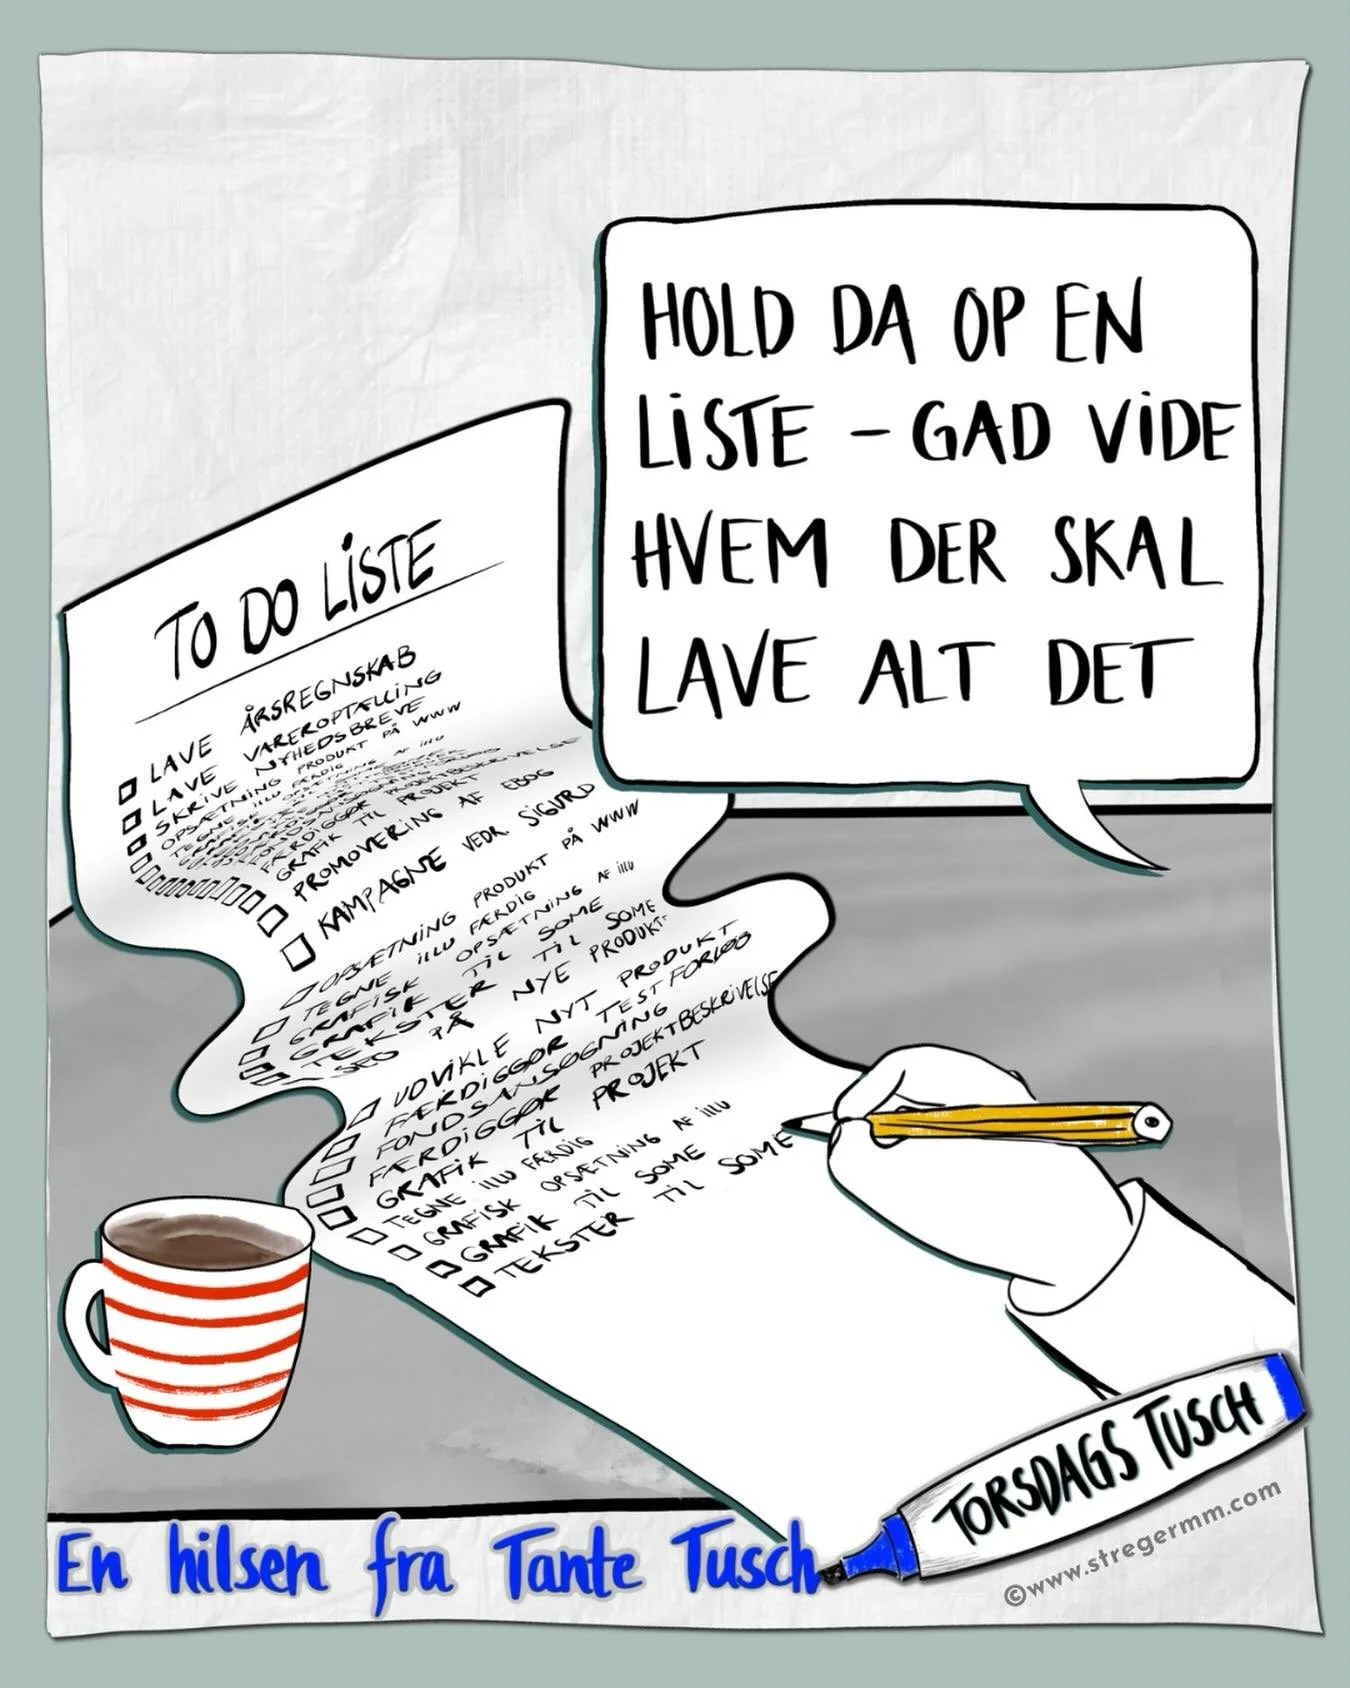 HOLD DA OP EN
LISTE – GAD VIDE
HVEM DER SKAL
LAVE ALT DET
TO DO LISTE
LAVE ÅRSREGNSKAB
LAVE VAREROPTÆLLING
SKRIVE NYHEDSBREVE
OPSÆTNING PRODUKT PÅ WWW
TEGNE ILLU FÆRDIG
FÆRDIGGØR PROJEKTBESKRIVELSE
GRAFIK TIL PROJEKT
PROMOVERING AF EBOG
KAMPAGNE VEDR. SIGURD
OPSÆTNING PRODUKT PÅ WWW
TEGNE ILLU FÆRDIG
GRAFISK OPSÆTNING AF ILLU
GRAFIK TIL SOME
TEKSTER TIL SOME
SEO PÅ NYE PRODUKT
UDVIKLE NYT PRODUKT
FÆRDIGGØR TESTFORLØB
FONDSANSØGNING
FÆRDIGGØR PROJEKTBESKRIVELSE
GRAFIK TIL PROJEKT
TEGNE ILLU FÆRDIG
GRAFISK OPSÆTNING AF ILLU
GRAFIK TIL SOME
TEKSTER TIL SOME
TORSDAGS TUSCH
En hilsen fra Tante Tusch
©www.stregermm.com